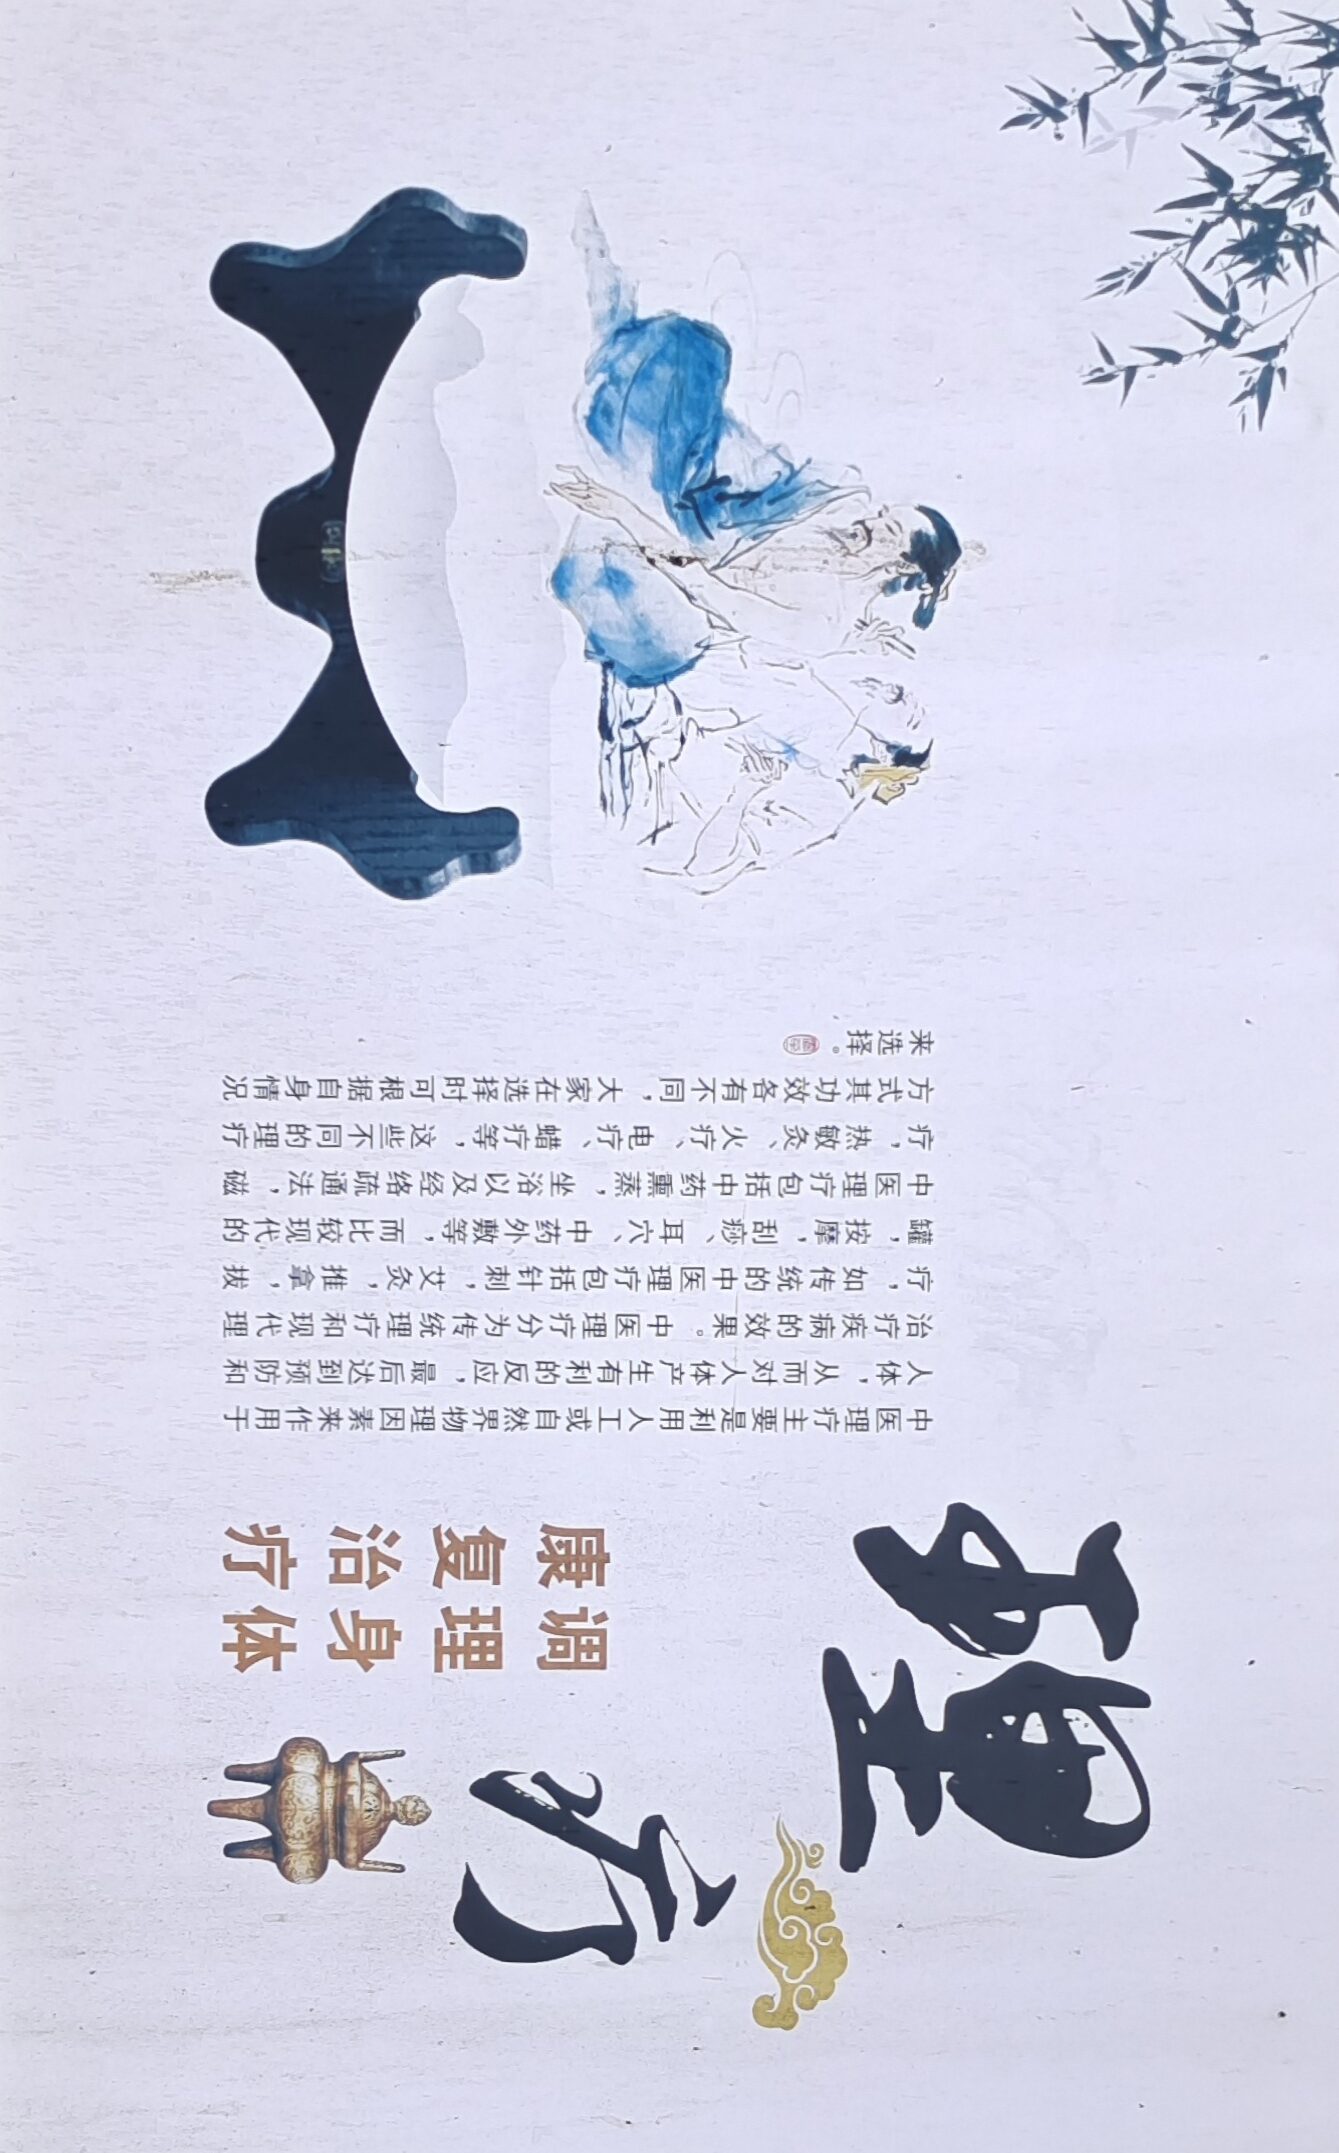 理疗
调理身体
康复治疗
中医理疗主要是利用人工或自然界物理因素来作用于
人体，从而对人体产生有利的反应，最后达到预防和
治疗疾病的效果。中医理疗分为传统理疗和现代理
疗，如传统的中医理疗包括针刺，艾灸，推拿，拔
罐，按摩，刮痧、耳穴、中药外敷等，而比较现代的
中医理疗包括中药熏蒸，坐浴以及经络疏通法，磁
疗，热敏灸、火疗、电疗、蜡疗等，这些不同的理疗
方式其功效各有不同，大家在选择时可根据自身情况
来选择。